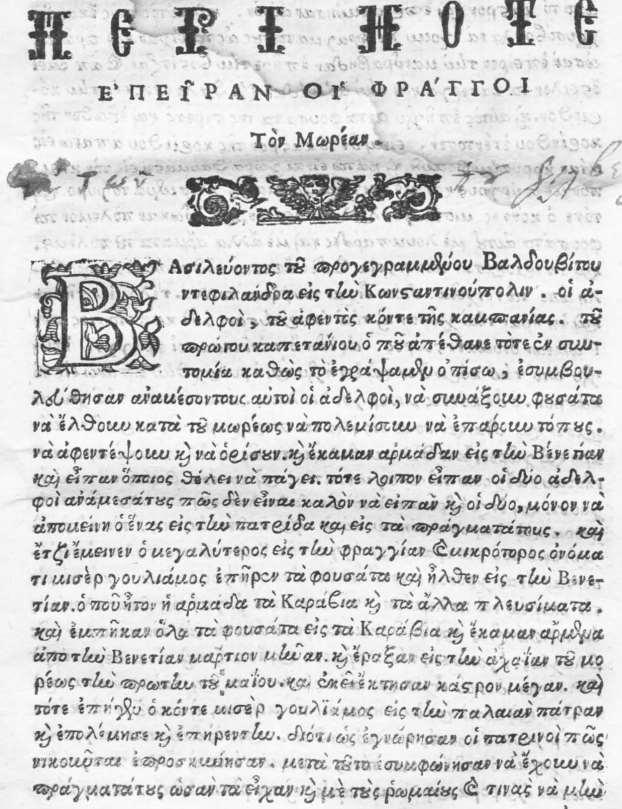 ΠΕΡΙ ΠΟΤΕ
ἘΠΕΙ͂ΡΑΝ ΟΙ῾ ΦΡΑ΄ΓΓΟΙ
Τὸν Μωρέαν
ΒΑσιλεύοντος τȣ͂ προγεγραμμένου Βαλδουβίτου
ντεφιλανδρα εἰς τὴν Κωνσταντινούπολιν. οἱ ἀ-
δελφοὶ, τȣ͂ ἀφεντὸς κόντε τῆς καμπανίας. τȣ͂
πρώτου καπετανίου ὁπȣ͂ ἀπέθανε τότε ἐν συν-
τομία καθὼς τὸ ἐγράψαμεν ὀπίσω, ἐσυμβου-
λεύθησαν ἀναμέσον τους αὐτοὶ οἱ ἀδελφοὶ, νὰ συνάξουν φυσάτα
νὰ ἔλθουν κατὰ τȣ͂ μωρέως νὰ πολεμίσουν νὰ ἐπάρουν τόπȣς.
νὰ ἀφεντέψουν κὶ νὰ ὁρίσȣν. κὶ ἔκαμαν αρμάδαν εἰς τὴν Βενετίαν
καὶ εἶπαν ὅποιος θέλει νὰ πάγει. τότε λοιπον εἶπαν οἱ δύο ἀδελ-
φοὶ ἀνάμεσάτȣς πῶς δὲν εἶναι καλὸν νὰ εἰπαν κὶ οἱ δύο, μόνον νὰ
ἀπομείνη ὁ ἕνας εἰς τὴν πατρίδα καὶ εἰς τὰ πράγματάτους. καὶ
ἔτζι ἔμεινεν ὁ μεγαλύτερος εἰς τὴν φραγγίαν ὁ μικρότορος ὀνόμα
τι μισὲρ γουλιάμος ἐπῆρεν τὰ φουσάτα καὶ ἦλθεν εἰς τὴν Βενε-
τίαν. ὁποῦ ἦτον ἡ αρμάδα τὰ Καράβια κὶ τὰ ἄλλα πλευσίματα.
καὶ ἐμπῆκαν ὅλα τὰ φουσάτα εἰς τὰ Καράβια κὶ ἔκαμαν ἄρμενα
ἀπο τὴν Βενετίαν μάρτιον μῆναν. κὶ ἔραξαν εἰς τὴν ἀχαΐαν τȣ͂ μο
ρέως τὴν πρώτην τοῦ μαΐου. καὶ ἐκεῖ ἔκτησαν κάστρον μέγαν. καὶ
τότε ἐπῆγεν ὁ κόντε μισερ γουλϊάμος εἰς τὴν παλαιαν πάτραν
κὶ ἐπολέμησε κὶ ἐπήρεν την. διότι ὡς ἐγνώρησαν οἱ πατρινοὶ πῶς
νικοῦται ἐπροσκυνησαν. μετὰ τȣ͂το ἐσυμφώνησαν νὰ ἔχουν νὰ
πράγματάτȣς ὡσαν τὰ εἶχαν κὶ μὲ τȣς ῥωμαίȣς ὁ τινας νὰ μὴν